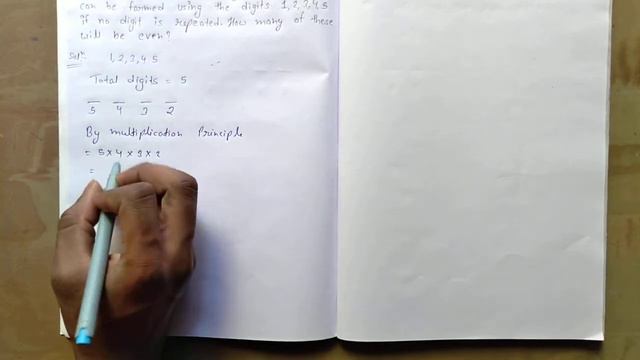 can be formed using the digits 1,2,3,4,5
if no digit is repeated. How many of these
will be even?
Solⁿ 1,2,3,4 5
Total digits = 5
5 4 3 2
By multiplication Principle
= 5 × 4 × 3 × 2
=